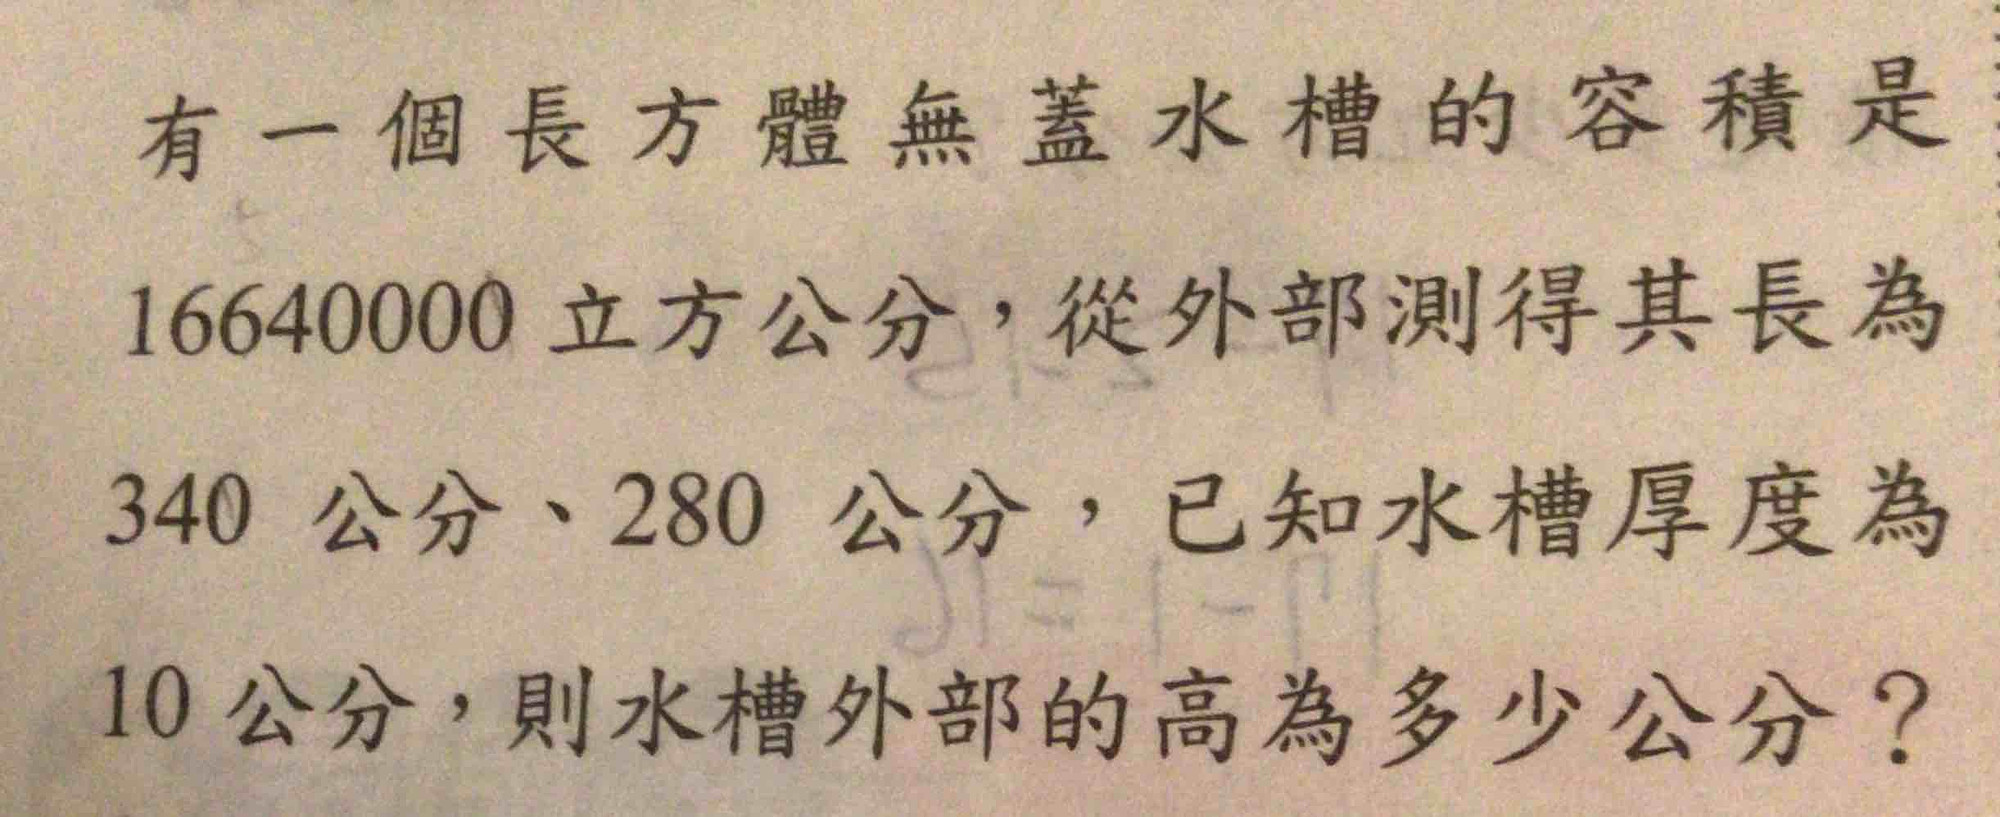 有一個長方體無蓋水槽的容積是
16640000 立方公分，從外部測得其長為
340 公分、280 公分，已知水槽厚度為
10 公分，則水槽外部的高為多少公分？